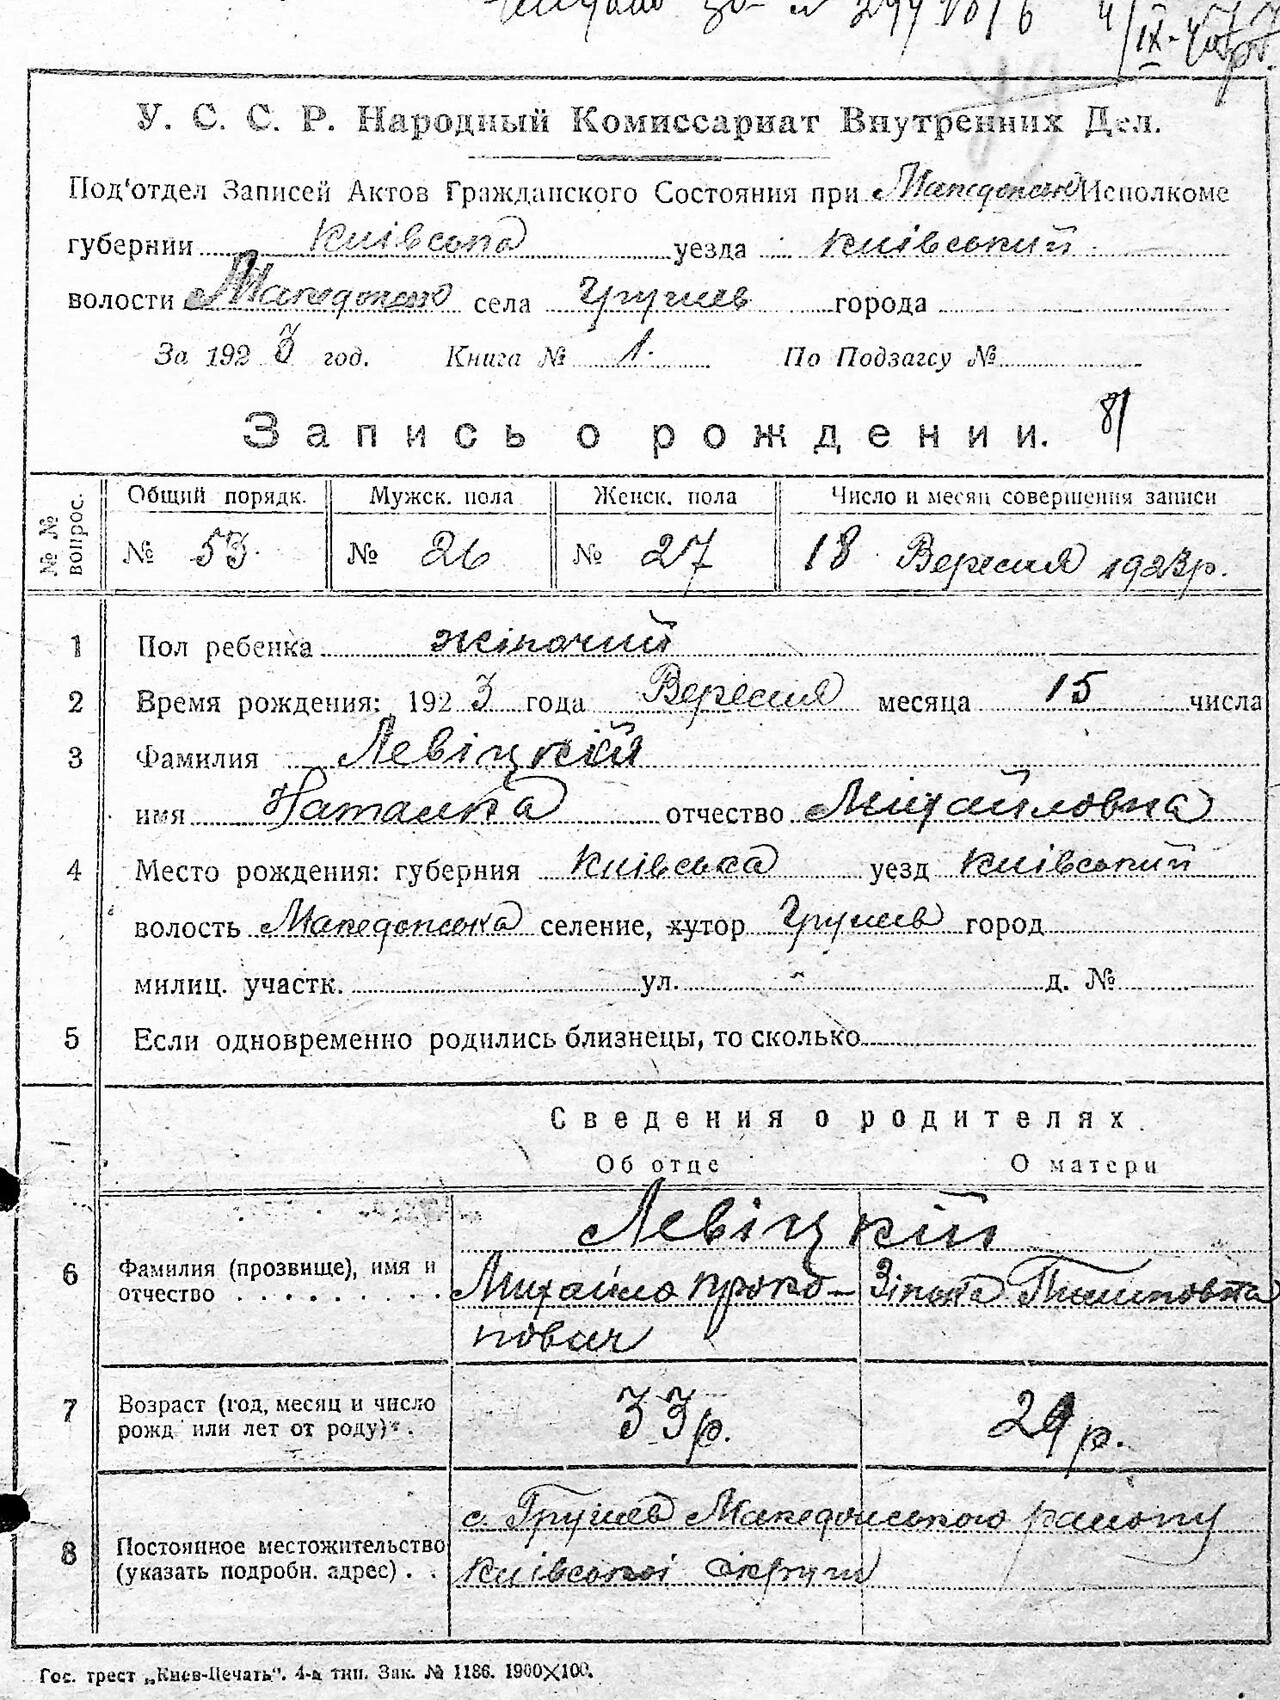 У. С. С. Р. Народный Комиссариат Внутренних Дел.
Под'отдел Записей Актов Гражданского Состояния при Исполкоме
губернии Київська уезда Київський
волости села Грушев города
За 1923 год. Книга № 1. По Подзагсу №
Запись о рождении. 81
№№ вопрос. Общий порядк. Мужск. пола Женск. пола Число и месяц совершения записи
№ 53. № 26 № 27 18 Вересня 1923р.
1 Пол ребенка жіночий
2 Время рождения: 1923 года Вересня месяца 15 числа
3 Фамилия Левіцкій
имя Наталка отчество Михайловна
4 Место рождения: губерния Київська уезд Київський
волость Македонська селение, хутор Грушев город
милиц. участк. ул. - д. №
5 Если одновременно родились близнецы, то сколько
Сведения о родителях.
Об отце О матери
Левіцкій
6 Фамилия (прозвище), имя и отчество Михайло Проко- Зіновія Пилиповна
пович
7 Возраст (год, месяц и число рожд или лет от роду) 33р. 29р.
с. Грушев Македонського району
8 Постоянное местожительство (указать подробн. адрес) Київської округи
Гос. трест „Киев-Печать". 4-я тип. Зак. № 1186. 1900×100.